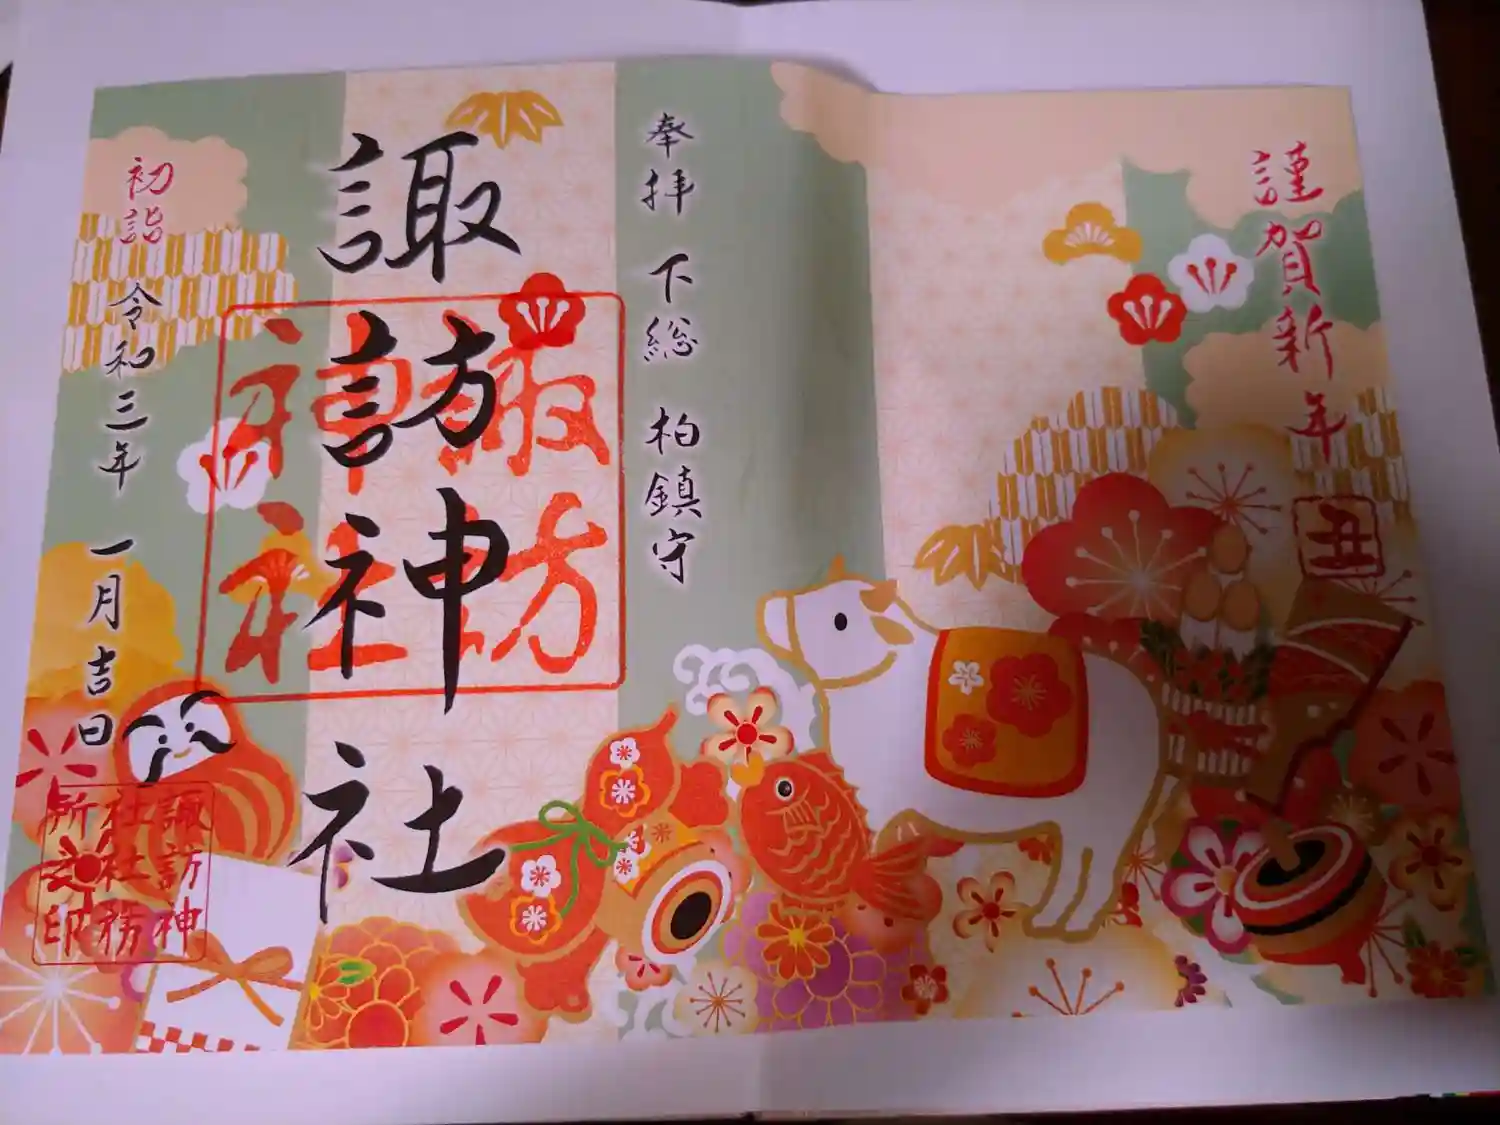 謹賀新年
丑
奉拝 下総 柏鎮守
諏訪神社
諏訪
神社
初詣 令和三年 一月吉日
諏訪神
社社務
所之印